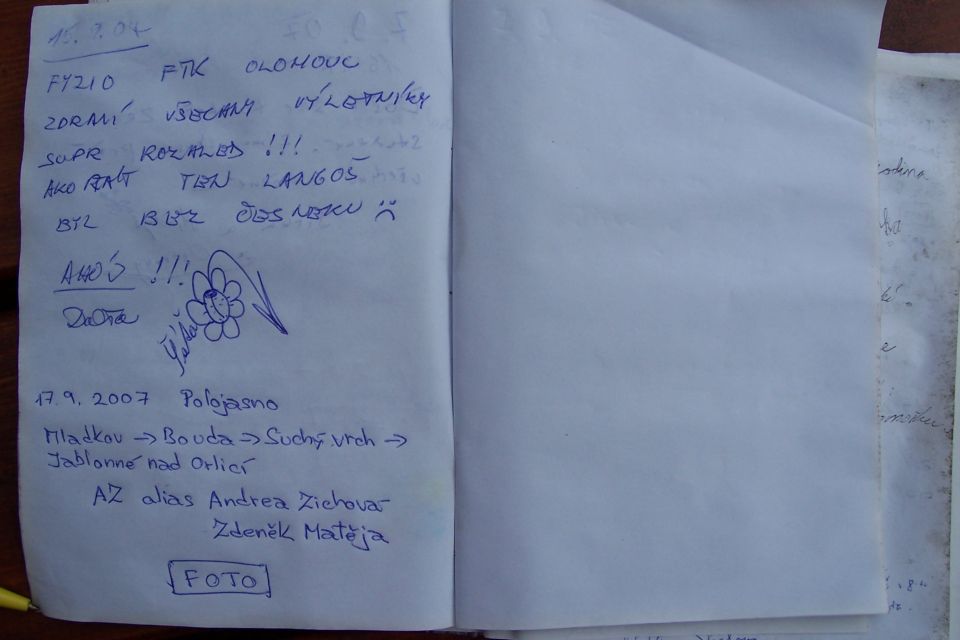 15.9.07
FYZIO FTK OLOMOUC
ZDRAVÍ VŠECHNY VÝLETNÍKY
SUPR ROZHLED !!!
AKORÁT TEN LANGOŠ
BYL BEZ ČESNEKU ☹
AHOJ !!!
17.9.2007 Polojasno
Mladkov → Bouda → Suchý vrch →
Jablonné nad Orlicí
AZ alias Andrea Zichová
Zdeněk Matěja
FOTO